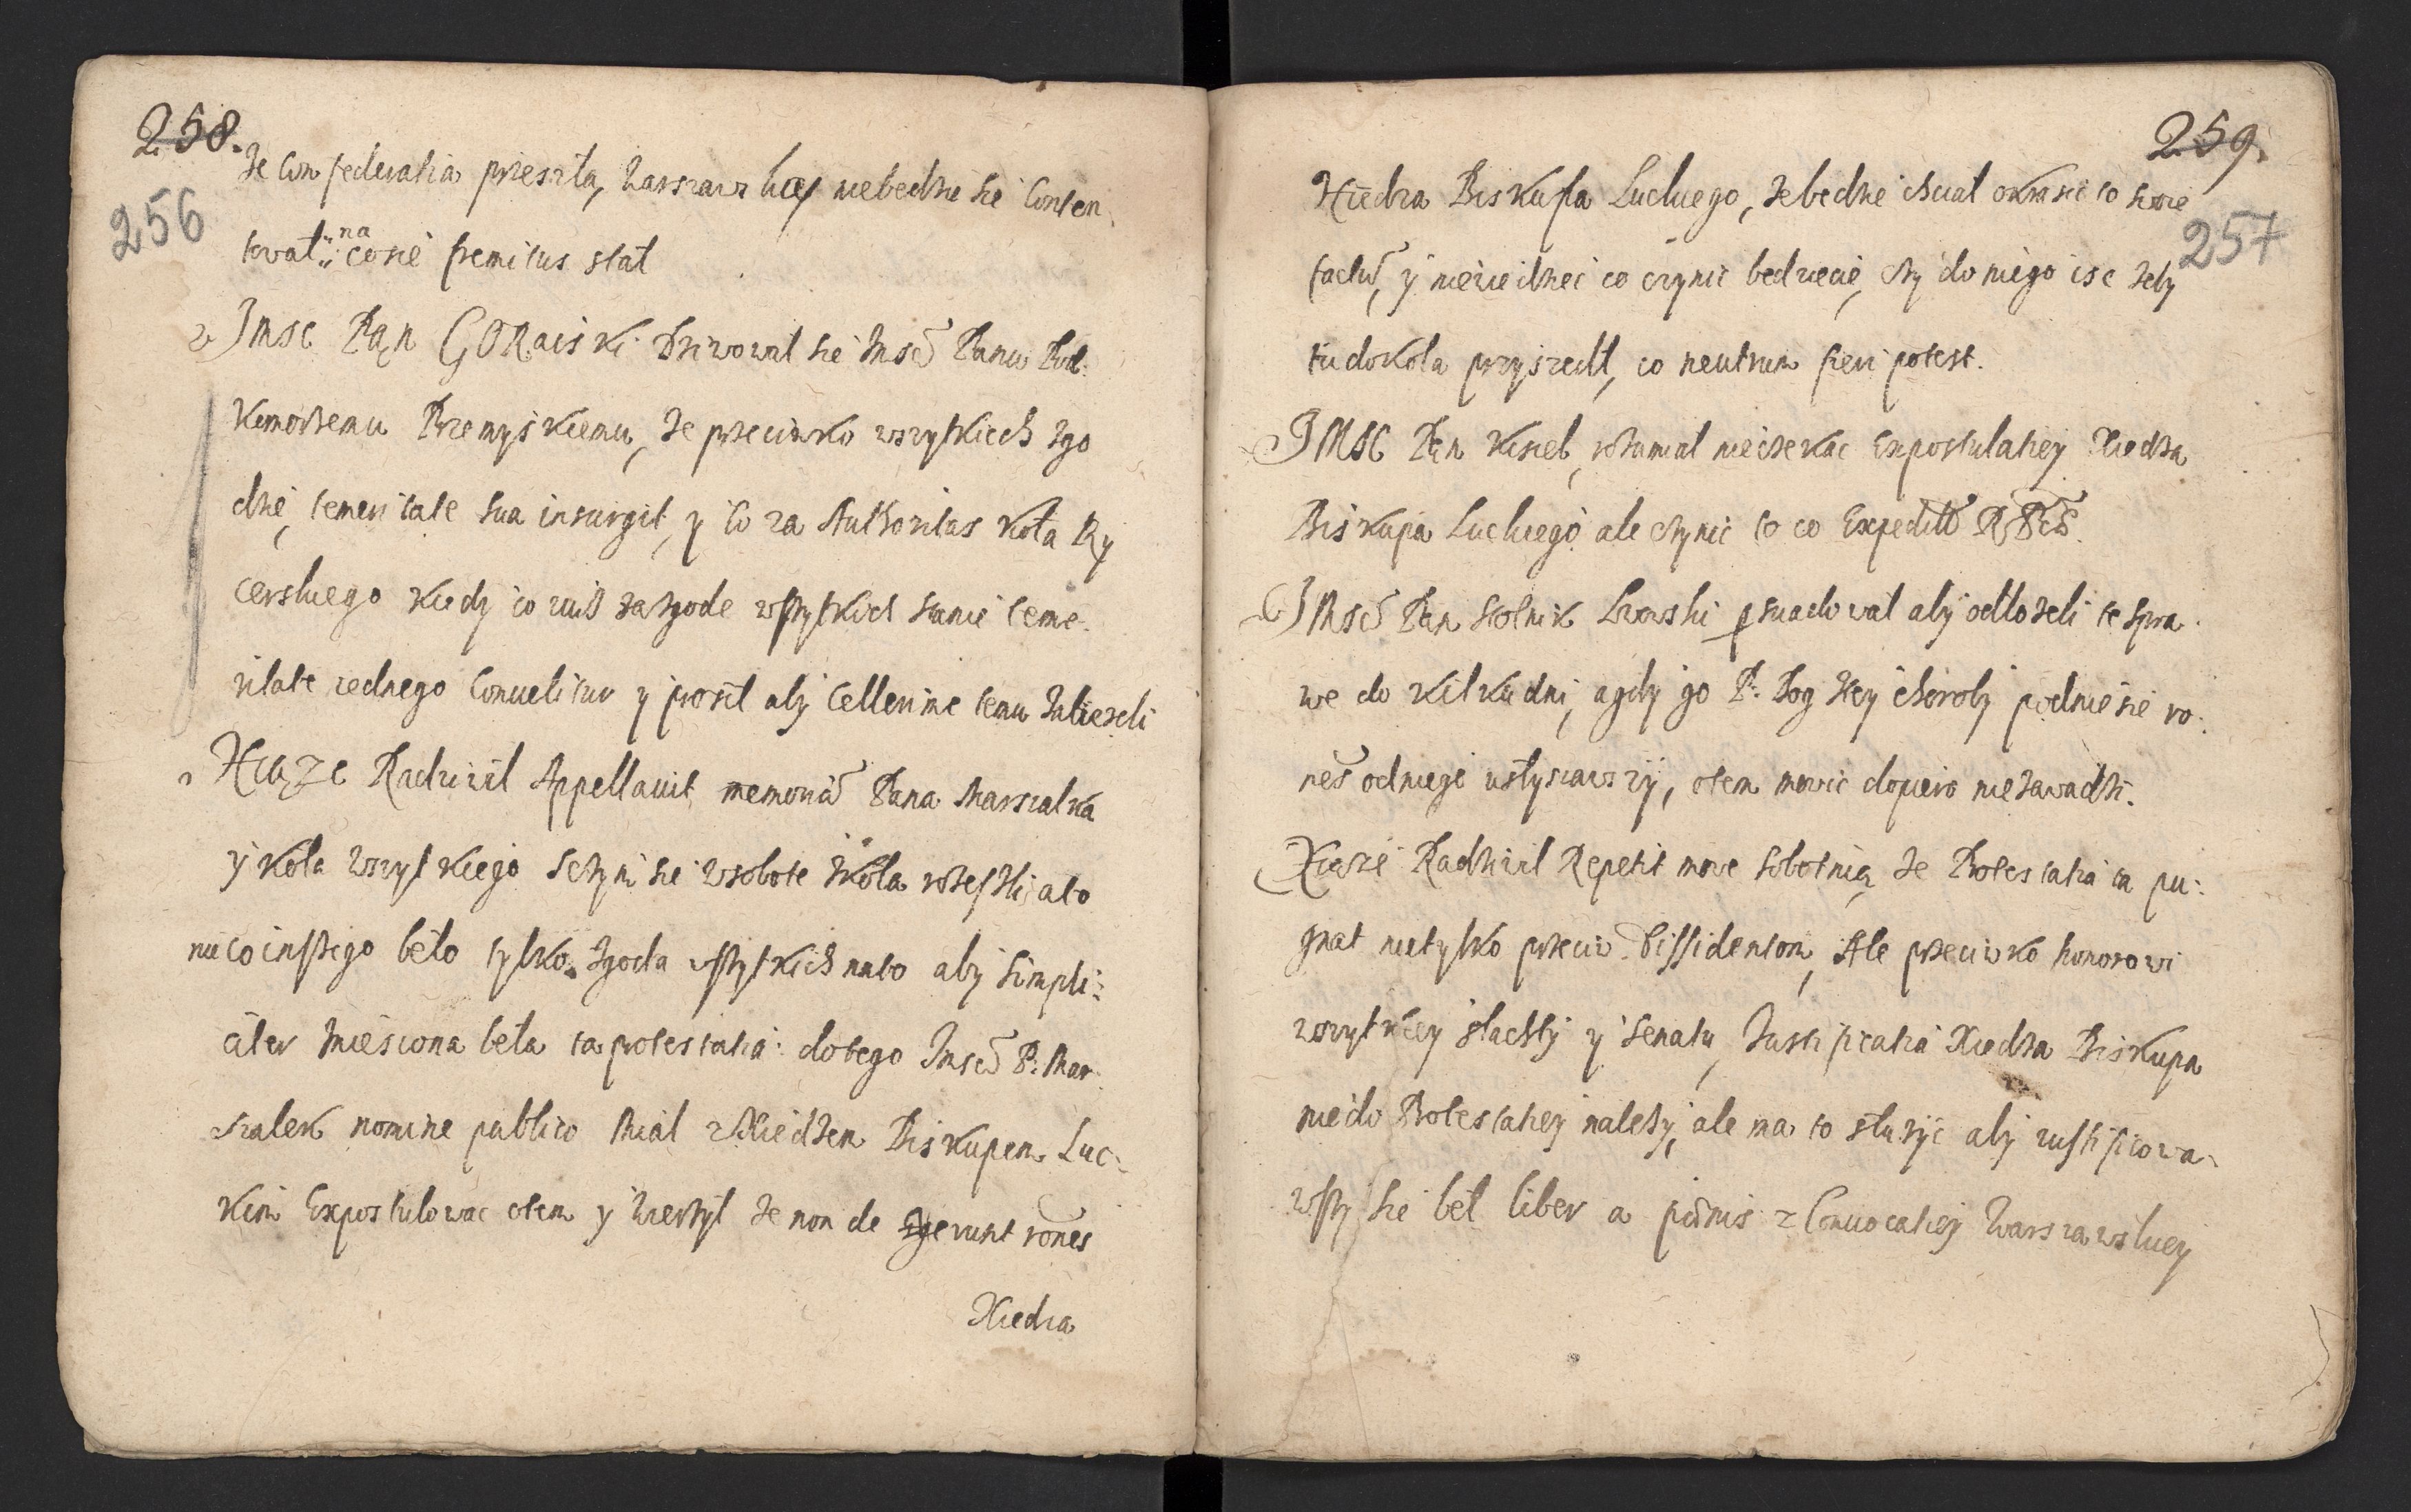 258.
256
Ze Confederatia przeszła, Warszawskiey niebedzie sie Conten
towal :: na cosie premitus stał
Jmsc Pan GORaiski Dziwował sie Jmsci Panu Pod:
komorzemu Przemyskiemu, ze przeciwko wszytkiech zgo
dzie, temeritate sua insurgit, y co za Authoritas Koła Ry
cerskiego kiedy co iusz za zgode wszytkich stanie teme-
ritate iednego Convelitur y prosił aby celerime temu zabiezeli
Xiąze Radziwił Appellauit memoria Pana Marszałka
y Koła wszytkiego s czym sie w sobote z Koła rozeszli, abo
nie co inszego beło tylko zgoda wszytkich na to aby simpli:
citer zniesiona beła ta protestatia: do tego Jmsci P. Mar
szałek nomine publico miał z Xiedzem Biskupem Luc:
kim Expostulowac o tem y twierdzył ze non de gerunt rones
Xiedza
259.
257
Xiedza Biskupa Luckiego, ze bedzie chciał okrasic to swoie
factu, y niewiedziec co czynic bedziecie, czy do niego isc zeby
tu do koła przyszedł, co neutrum fieri potest.
JMSC Pan Kisiel, rozumiał nieczekac Expostulatiey Xiedza
Biskupa Luckiego ale czynic to co Expedit R Pcae.
JMsci Pan Stolnik Lwowski psuadował aby odłozeli te spra
we do kilku dni, a gdy go P. Bog z tey choroby podniesie ro:
nes od niego usłyszawszy, o tem mowic dopiero niezawadzi.
Xiąze Radziwił Repetit mowe sobotnią, ze Protestatia ta pu:
gnat nietylko przeciw Dissidentom, Ale przeciwko honorowi
wszytkiey slachty y Senatu, Justificatia Xiedza Biskupa
niedo Protestatiey nalezy, ale ma to słuzyc aby iustificowa
wszy sie beł liber a pœnis z Convocatiey Warszawskiey